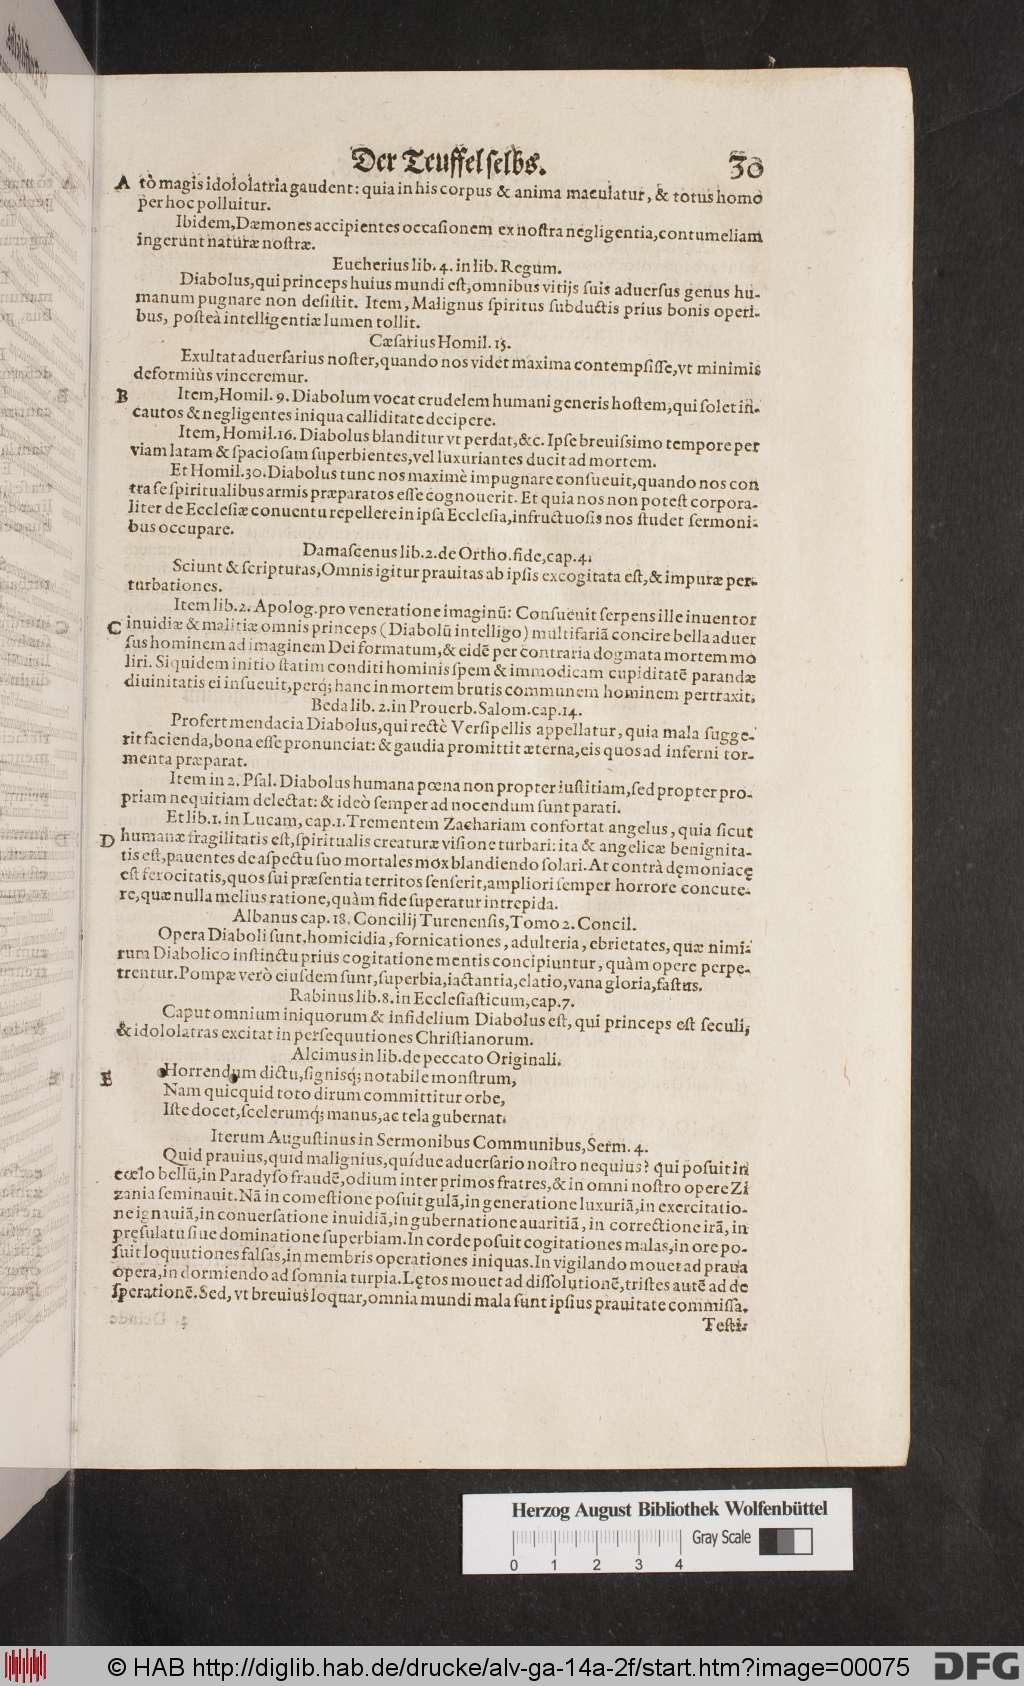 Der Teuffel selbs. 30
A tò magis idololatria gaudent: quia in his corpus & anima maculatur, & totus homo
per hoc polluitur.
Ibidem, Dæmones accipientes occaſionem ex noſtra negligentia, contumeliam
ingerunt naturæ noſtræ.
Eucherius lib. 4. in lib. Regum.
Diabolus, qui princeps huius mundi eſt, omnibus vitijs ſuis aduerſus genus hu-
manum pugnare non deſiſtit. Item, Malignus ſpiritus ſubductis prius bonis operi-
bus, poſteà intelligentiæ lumen tollit.
Cæſarius Homil. 15.
Exultat aduerſarius noſter, quando nos videt maxima contempſiſſe, vt minimis
deformiùs vinceremur.
B Item, Homil. 9. Diabolum vocat crudelem humani generis hoſtem, qui ſolet in-
cautos & negligentes iniqua calliditate decipere.
Item, Homil. 16. Diabolus blanditur vt perdat, &c. Ipſe breuiſsimo tempore per
viam latam & ſpacioſam ſuperbientes, vel luxuriantes ducit ad mortem.
Et Homil. 30. Diabolus tunc nos maximè impugnare conſueuit, quando nos con
tra ſe ſpiritualibus armis præparatos eſſe cognouerit. Et quia nos non poteſt corpora-
liter de Eccleſiæ conuentu repellere in ipſa Eccleſia, infructuoſis nos ſtudet ſermoni-
bus occupare.
Damaſcenus lib. 2. de Ortho. fide, cap. 4.
Sciunt & ſcripturas, Omnis igitur prauitas ab ipſis excogitata eſt, & impuræ per-
turbationes.
Item lib. 2. Apolog. pro veneratione imaginū: Conſueuit ſerpens ille inuentor
C inuidiæ & malitiæ omnis princeps (Diabolū intelligo) multifariā concire bella aduer
ſus hominem ad imaginem Dei formatum, & eidē per contraria dogmata mortem mo
liri. Siquidem initio ſtatim conditi hominis ſpem & immodicam cupiditatē parandæ
diuinitatis ei inſueuit, perq́; hanc in mortem brutis communem hominem pertraxit.
Beda lib. 2. in Prouerb. Salom. cap. 14.
Profert mendacia Diabolus, qui rectè Verſipellis appellatur, quia mala ſugge-
rit facienda, bona eſſe pronunciat: & gaudia promittit æterna, eis quos ad inferni tor-
menta præparat.
Item in 2. Pſal. Diabolus humana pœna non propter iuſtitiam, ſed propter pro-
priam nequitiam delectat: & ideò ſemper ad nocendum ſunt parati.
Et lib. 1. in Lucam, cap. 1. Trementem Zachariam confortat angelus, quia ſicut
D humanæ fragilitatis eſt, ſpiritualis creaturæ viſione turbari: ita & angelicæ benignita-
tis eſt, pauentes de aſpectu ſuo mortales mox blandiendo ſolari. At contrà dęmoniacę
eſt ferocitatis, quos ſui præſentia territos ſenſerit, ampliori ſemper horrore concute-
re, quæ nulla melius ratione, quàm fide ſuperatur intrepida.
Albanus cap. 18. Concilij Turenenſis, Tomo 2. Concil.
Opera Diaboli ſunt, homicidia, fornicationes, adulteria, ebrietates, quæ nimi-
rum Diabolico inſtinctu prius cogitatione mentis concipiuntur, quàm opere perpe-
trentur. Pompæ verò eiuſdem ſunt, ſuperbia, iactantia, elatio, vana gloria, faſtus.
Rabinus lib. 8. in Eccleſiaſticum, cap. 7.
Caput omnium iniquorum & infidelium Diabolus eſt, qui princeps eſt ſeculi,
& idololatras excitat in perſequutiones Chriſtianorum.
Alcimus in lib. de peccato Originali.
E Horrendum dictu, ſignisq́; notabile monſtrum,
Nam quicquid toto dirum committitur orbe,
Iſte docet, ſcelerumq́; manus, ac tela gubernat.
Iterum Auguſtinus in Sermonibus Communibus, Serm. 4.
Quid prauius, quid malignius, quídue aduerſario noſtro nequius? qui poſuit in
cœlo bellū, in Paradyſo fraudē, odium inter primos fratres, & in omni noſtro opere Zi
zania ſeminauit. Nā in comeſtione poſuit gulā, in generatione luxuriā, in exercitatio-
ne ignauiā, in conuerſatione inuidiā, in gubernatione auaritiā, in correctione irā, in
pręſulatu ſiue dominatione ſuperbiam. In corde poſuit cogitationes malas, in ore po-
ſuit loquutiones falſas, in membris operationes iniquas. In vigilando mouet ad praua
opera, in dormiendo ad ſomnia turpia. Lętos mouet ad diſſolutionē, triſtes autē ad de
ſperationē. Sed, vt breuius loquar, omnia mundi mala ſunt ipſius prauitate commiſſa.
Teſti-
Herzog August Bibliothek Wolfenbüttel
Gray Scale
0 1 2 3 4
© HAB http://diglib.hab.de/drucke/alv-ga-14a-2f/start.htm?image=00075 DFG